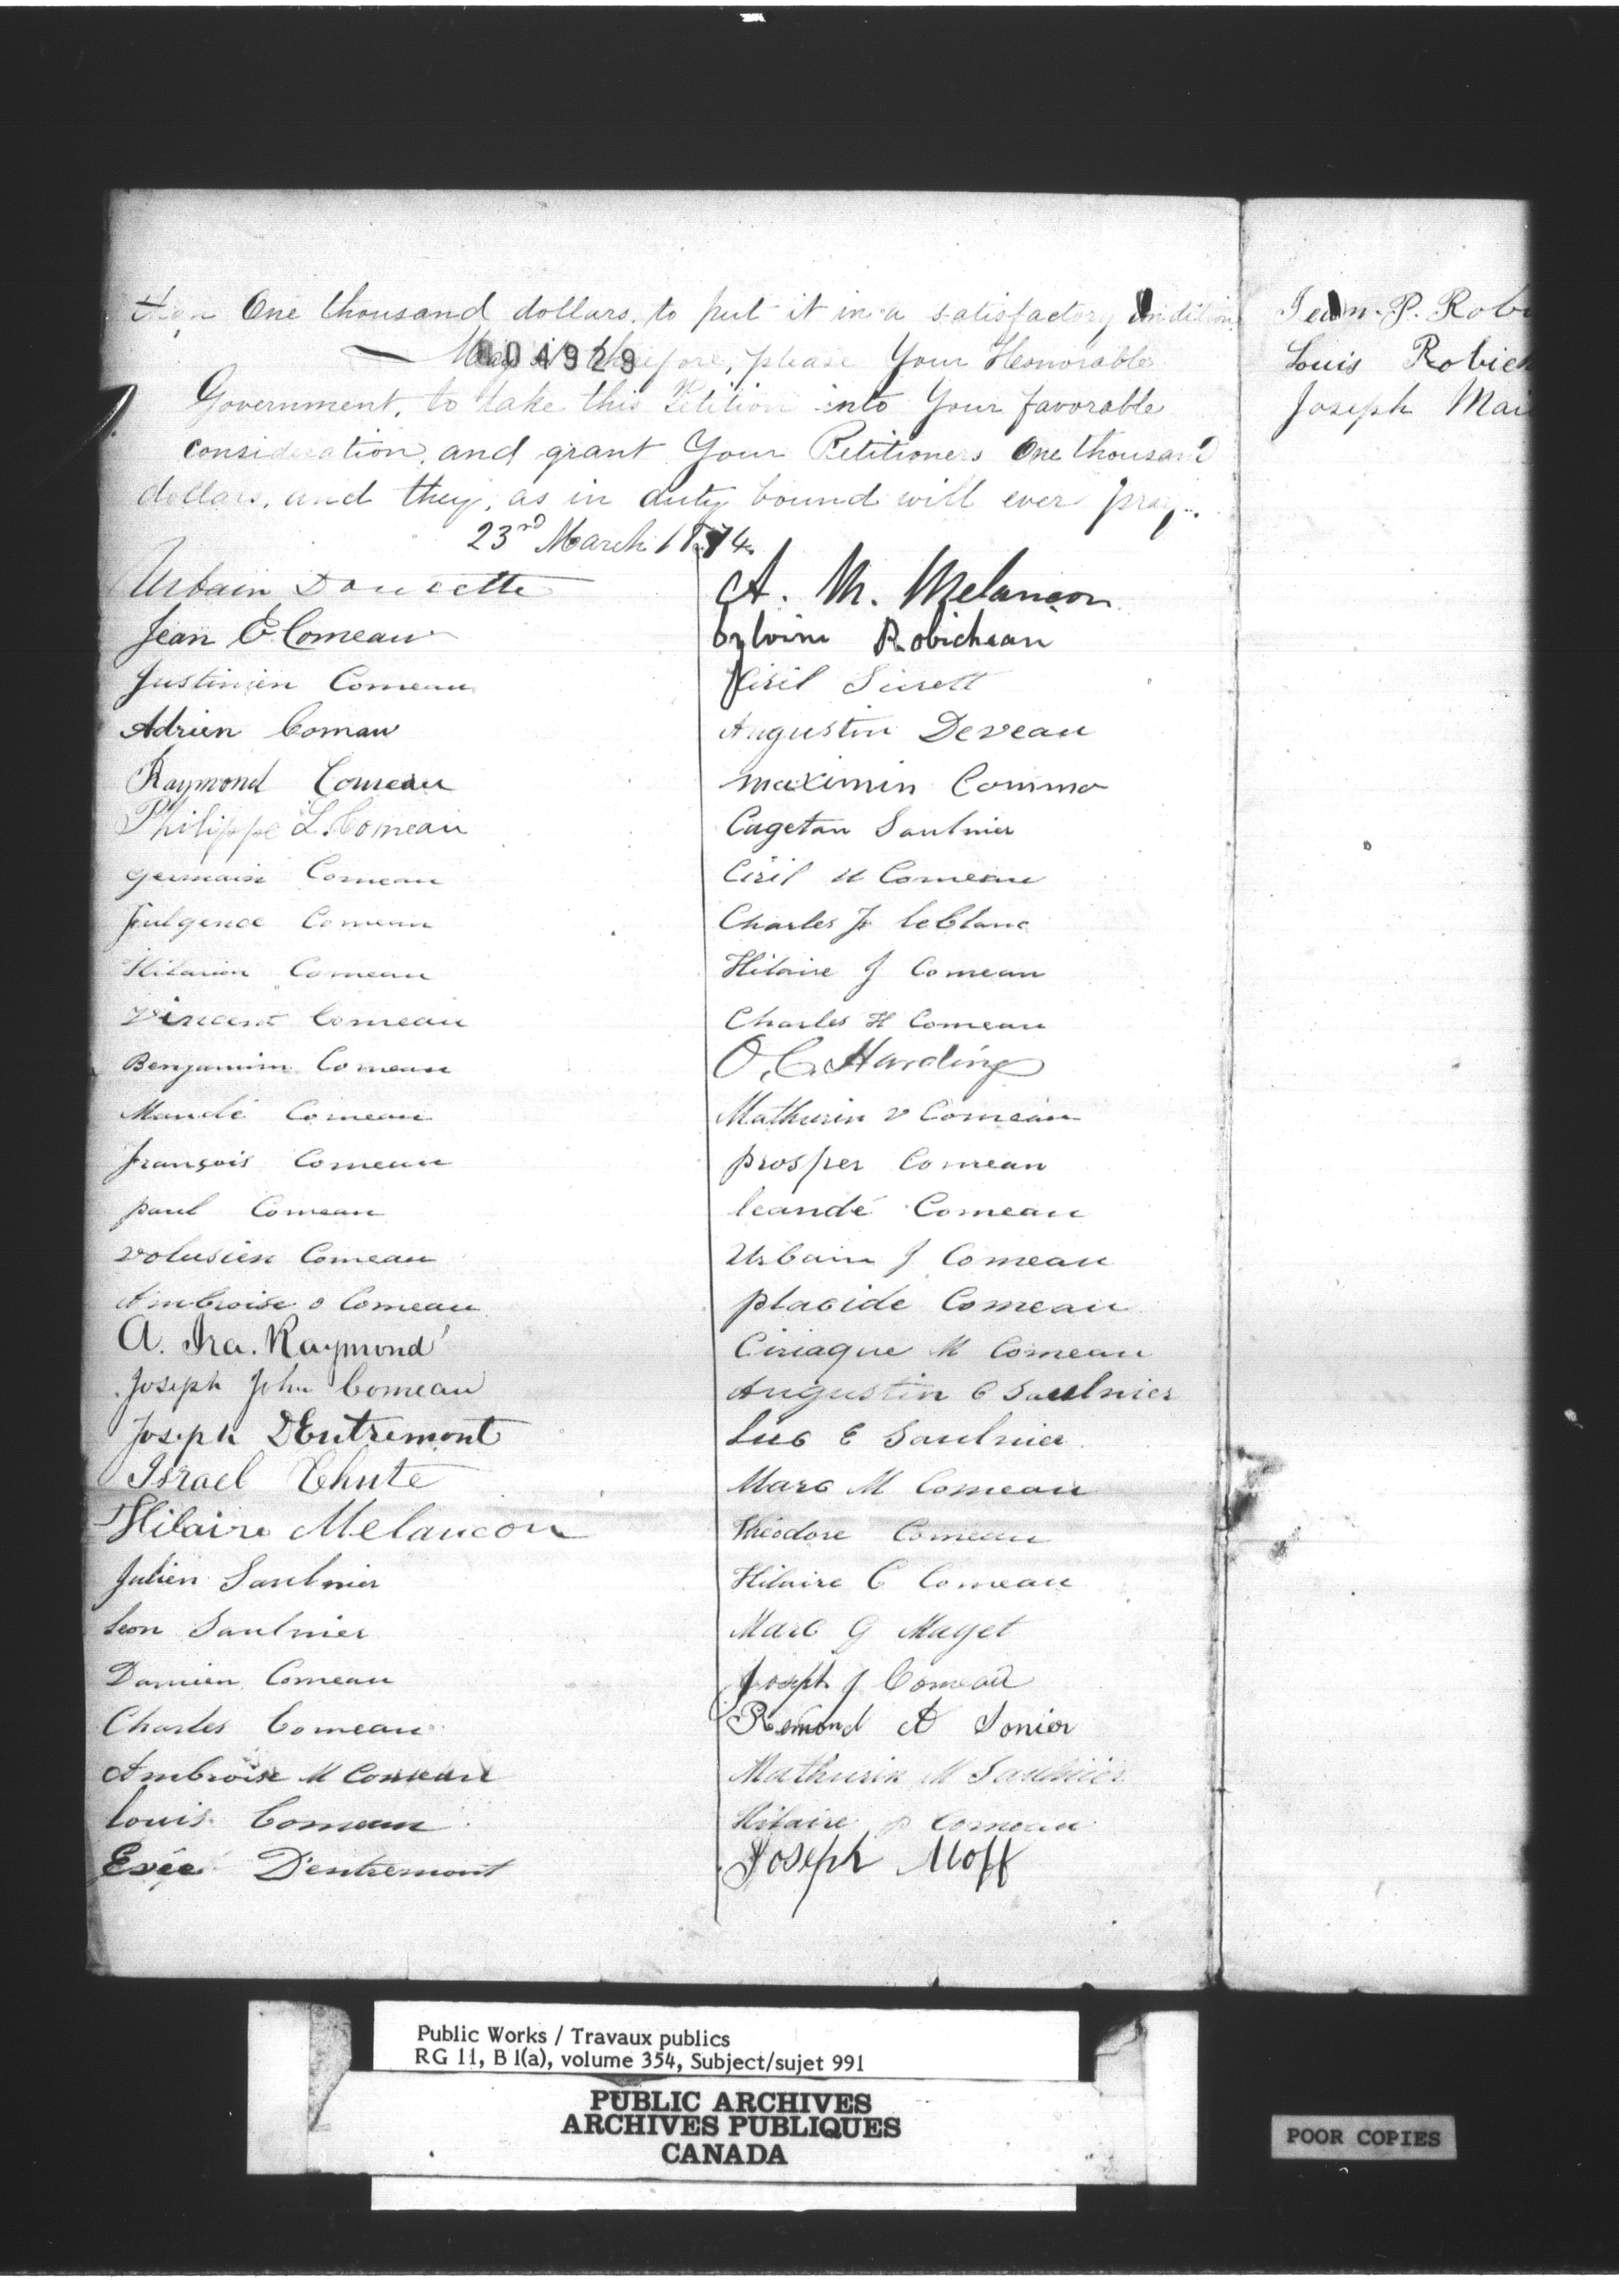 than One thousand dollars, to put it in a satisfactory condition
May it therefore, please Your Honorable
004929
Government, to take this Petition into Your favorable
consideration, and grant Your Petitioners One thousand
dollars, and they, as in duty bound will ever pray.
23rd March 1874.
Urbain Doucette
Jean E Comeau
Justinien Comeau
Adrien Comau
Raymond Comeau
Philippe L. Comeau
germain Comeau
fulgence Comeau
Hilarion Comeau
Vincent Comeau
Benjamim Comeau
Mandé Comeau
françois Comeau
paul Comeau
volusien Comeau
Ambroise o Comeau
A. Ira. Raymond
Joseph John Comeau
Joseph DEntremont
Israel Chute
Hilaire Melancon
Julien Saulnier
Leon Saulnier
Damien Comeau
Charles Comeau
Ambroise M Comeau
louis Comeau
Esée D'entremont
A. M. Melançon
Robicheau
Ciril
Augustin Deveau
maximin Commo
Cagetan Saulnier
Ciril u Comeau
Charles Jr leBlanc
Hilaire J Comeau
Charles H Comeau
O. C. Harding
Mathurin v Comeau
prosper Comeau
leandé Comeau
Urbain J Comeau
placide Comeau
Ciriaque M Comeau
Augustin C Saulnier
Luc E Saulnier
Marc M Comeau
Théodore Comeau
Hilaire C Comeau
Marc G Mayet
Joseph J Comeau
Remond A Sonier
Mathurin M Saulnier
Hilaire p Comeau
Joseph Moff
Jean. P. Robi
Louis Robich
Joseph Mai
Public Works / Travaux publics
RG 11, B 1(a), volume 354, Subject/sujet 991
PUBLIC ARCHIVES
ARCHIVES PUBLIQUES
CANADA
POOR COPIES